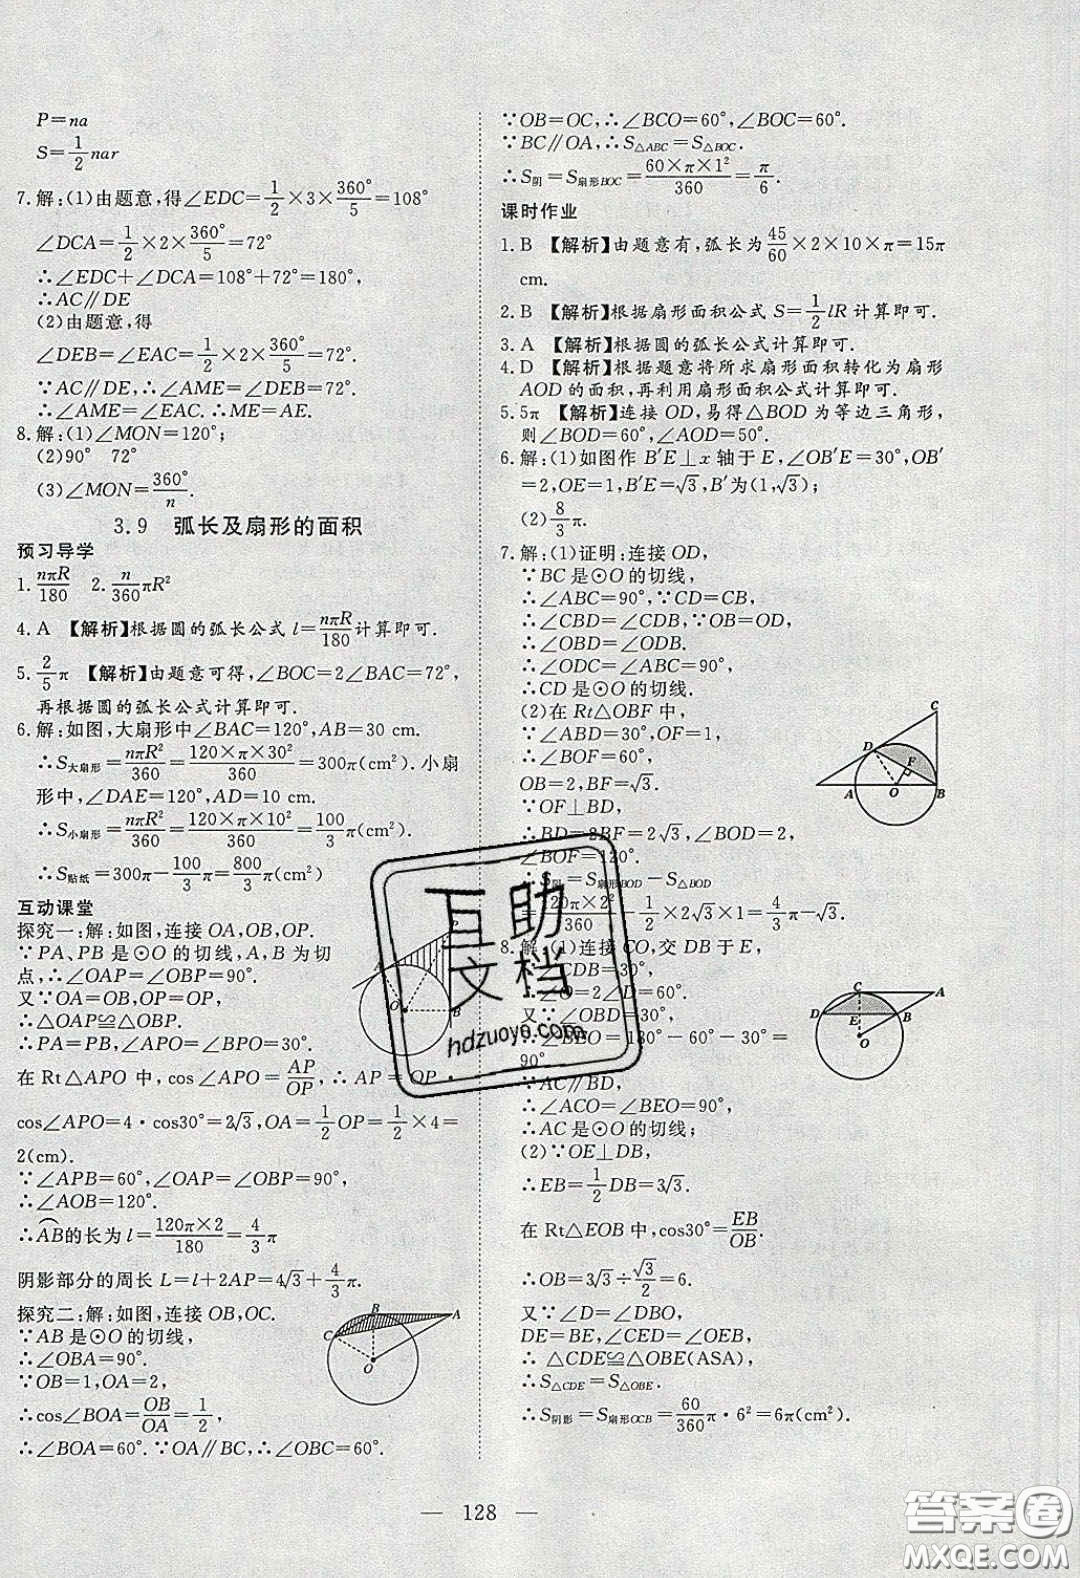 P=na
S=1/2 nar
7.解:(1)由题意,得∠EDC=1/2×3×360°/5=108°
∠DCA=1/2×2×360°/5=72°
∴∠EDC+∠DCA=108°+72°=180°,
∴AC∥DE
(2)由题意,得
∠DEB=∠EAC=1/2×2×360°/5=72°
∵AC∥DE,∴∠AME=∠DEB=72°
∴∠AME=∠EAC.∴ME=AE.
8.解:(1)∠MON=120°;
(2)90° 72°
(3)∠MON=360°/n.
3.9 弧长及扇形的面积
预习导学
1.nπR/180 2.n/360 πR²
4.A 【解析】根据圆的弧长公式 l=nπR/180计算即可.
5.2/5π 【解析】由题意可得,∠BOC=2∠BAC=72°,
再根据圆的弧长公式计算即可.
6.解:如图,大扇形中∠BAC=120°,AB=30 cm.
∴S大扇形=nπR²/360=120×π×30²/360=300π(cm²).小扇
形中,∠DAE=120°,AD=10 cm.
∴S小扇形=nπR²/360=120×π×10²/360=100/3π(cm²)
∴S贴纸=300π−100/3π=800/3π(cm²)
互动课堂
探究一:解:如图,连接OA,OB,OP.
∵PA,PB是⊙O的切线,A,B为切
点,∴∠OAP=∠OBP=90°.
又∵OA=OB,OP=OP,
∴△OAP≌△OBP.
∴PA=PB,∠APO=∠BPO=30°.
在Rt△APO中,cos∠APO=AP/OP,∴AP=OP·
cos∠APO=4·cos30°=2√3,OA=1/2OP=1/2×4=
2(cm).
∵∠APB=60°,∠OAP=∠OBP=90°,
∴∠AOB=120°.
∴AB的长为l=120π×2/180=4/3π
阴影部分的周长L=l+2AP=4√3+4/3π.
探究二:解:如图,连接OB,OC.
∵AB是⊙O的切线,
∴∠OBA=90°.
∵OB=1,OA=2,
∴cos∠BOA=OB/OA=1/2,
∴∠BOA=60°.∵OA∥BC,∴∠OBC=60°.
P
A
O
B
B
A
C
O
∵OB=OC,∴∠BCO=60°,∠BOC=60°.
∵BC∥OA,∴S△ABC=S△BOC.
∴S阴=S扇形BOC=60×π×1²/360=π/6.
课时作业
1.B 【解析】由题意有,弧长为45/60×2×10×π=15π
cm.
2.B 【解析】根据扇形面积公式 S=1/2lR计算即可.
3.A 【解析】根据圆的弧长公式计算即可.
4.D 【解析】根据题意将所求扇形面积转化为扇形
AOD的面积,再利用扇形面积公式计算即可.
5.5π 【解析】连接OD,易得△BOD为等边三角形,
则∠BOD=60°,∠AOD=50°.
6.解:(1)如图作B′E⊥x轴于E,∠OB′E=30°,OB′
=2,OE=1,B′E=√3,B′为(1,√3).
(2)8/3π.
7.解:(1)证明:连接OD,
∵BC是⊙O的切线,
∴∠ABC=90°,∵CD=CB,
∴∠CBD=∠CDB.∵OB=OD,
∴∠OBD=∠ODB.
∴∠ODC=∠ABC=90°,
∴CD是⊙O的切线.
(2)在Rt△OBF中,
∵∠ABD=30°,OF=1,
∴∠BOF=60°,
OB=2,BF=√3.
∵OF⊥BD,
∴BD=2BF=2√3,∠BOD=2
∠BOF=120°.
∴S阴=S扇形BOD−S△BOD
=120π×2²/360−1/2×2√3×1=4/3π−√3.
C
D
F
A
O
B
8.解:(1)连接CO,交DB于E,
∠CDB=30°,
∴∠O=2∠CDB=60°.
又∵∠OBD=30°,
∴∠BEO=180°−60°−30°=
90°.
∵AC∥BD,
∴∠ACO=∠BEO=90°,
∴AC是⊙O的切线;
(2)∵OE⊥DB,
∴EB=1/2DB=3√3.
在Rt△EOB中,cos30°=EB/OB.
∴OB=3√3÷√3/2=6.
又∵∠D=∠DBO,
DE=BE,∠CED=∠OEB,
∴△CDE≌△OBE(ASA)
∴S△CDE=S△OBE.
∴S阴影=S扇形OCB=60/360π·6²=6π(cm²).
C
A
D
E
B
O
互助
文档
hdzuoye.com
128
答案圈
MXQE.COM